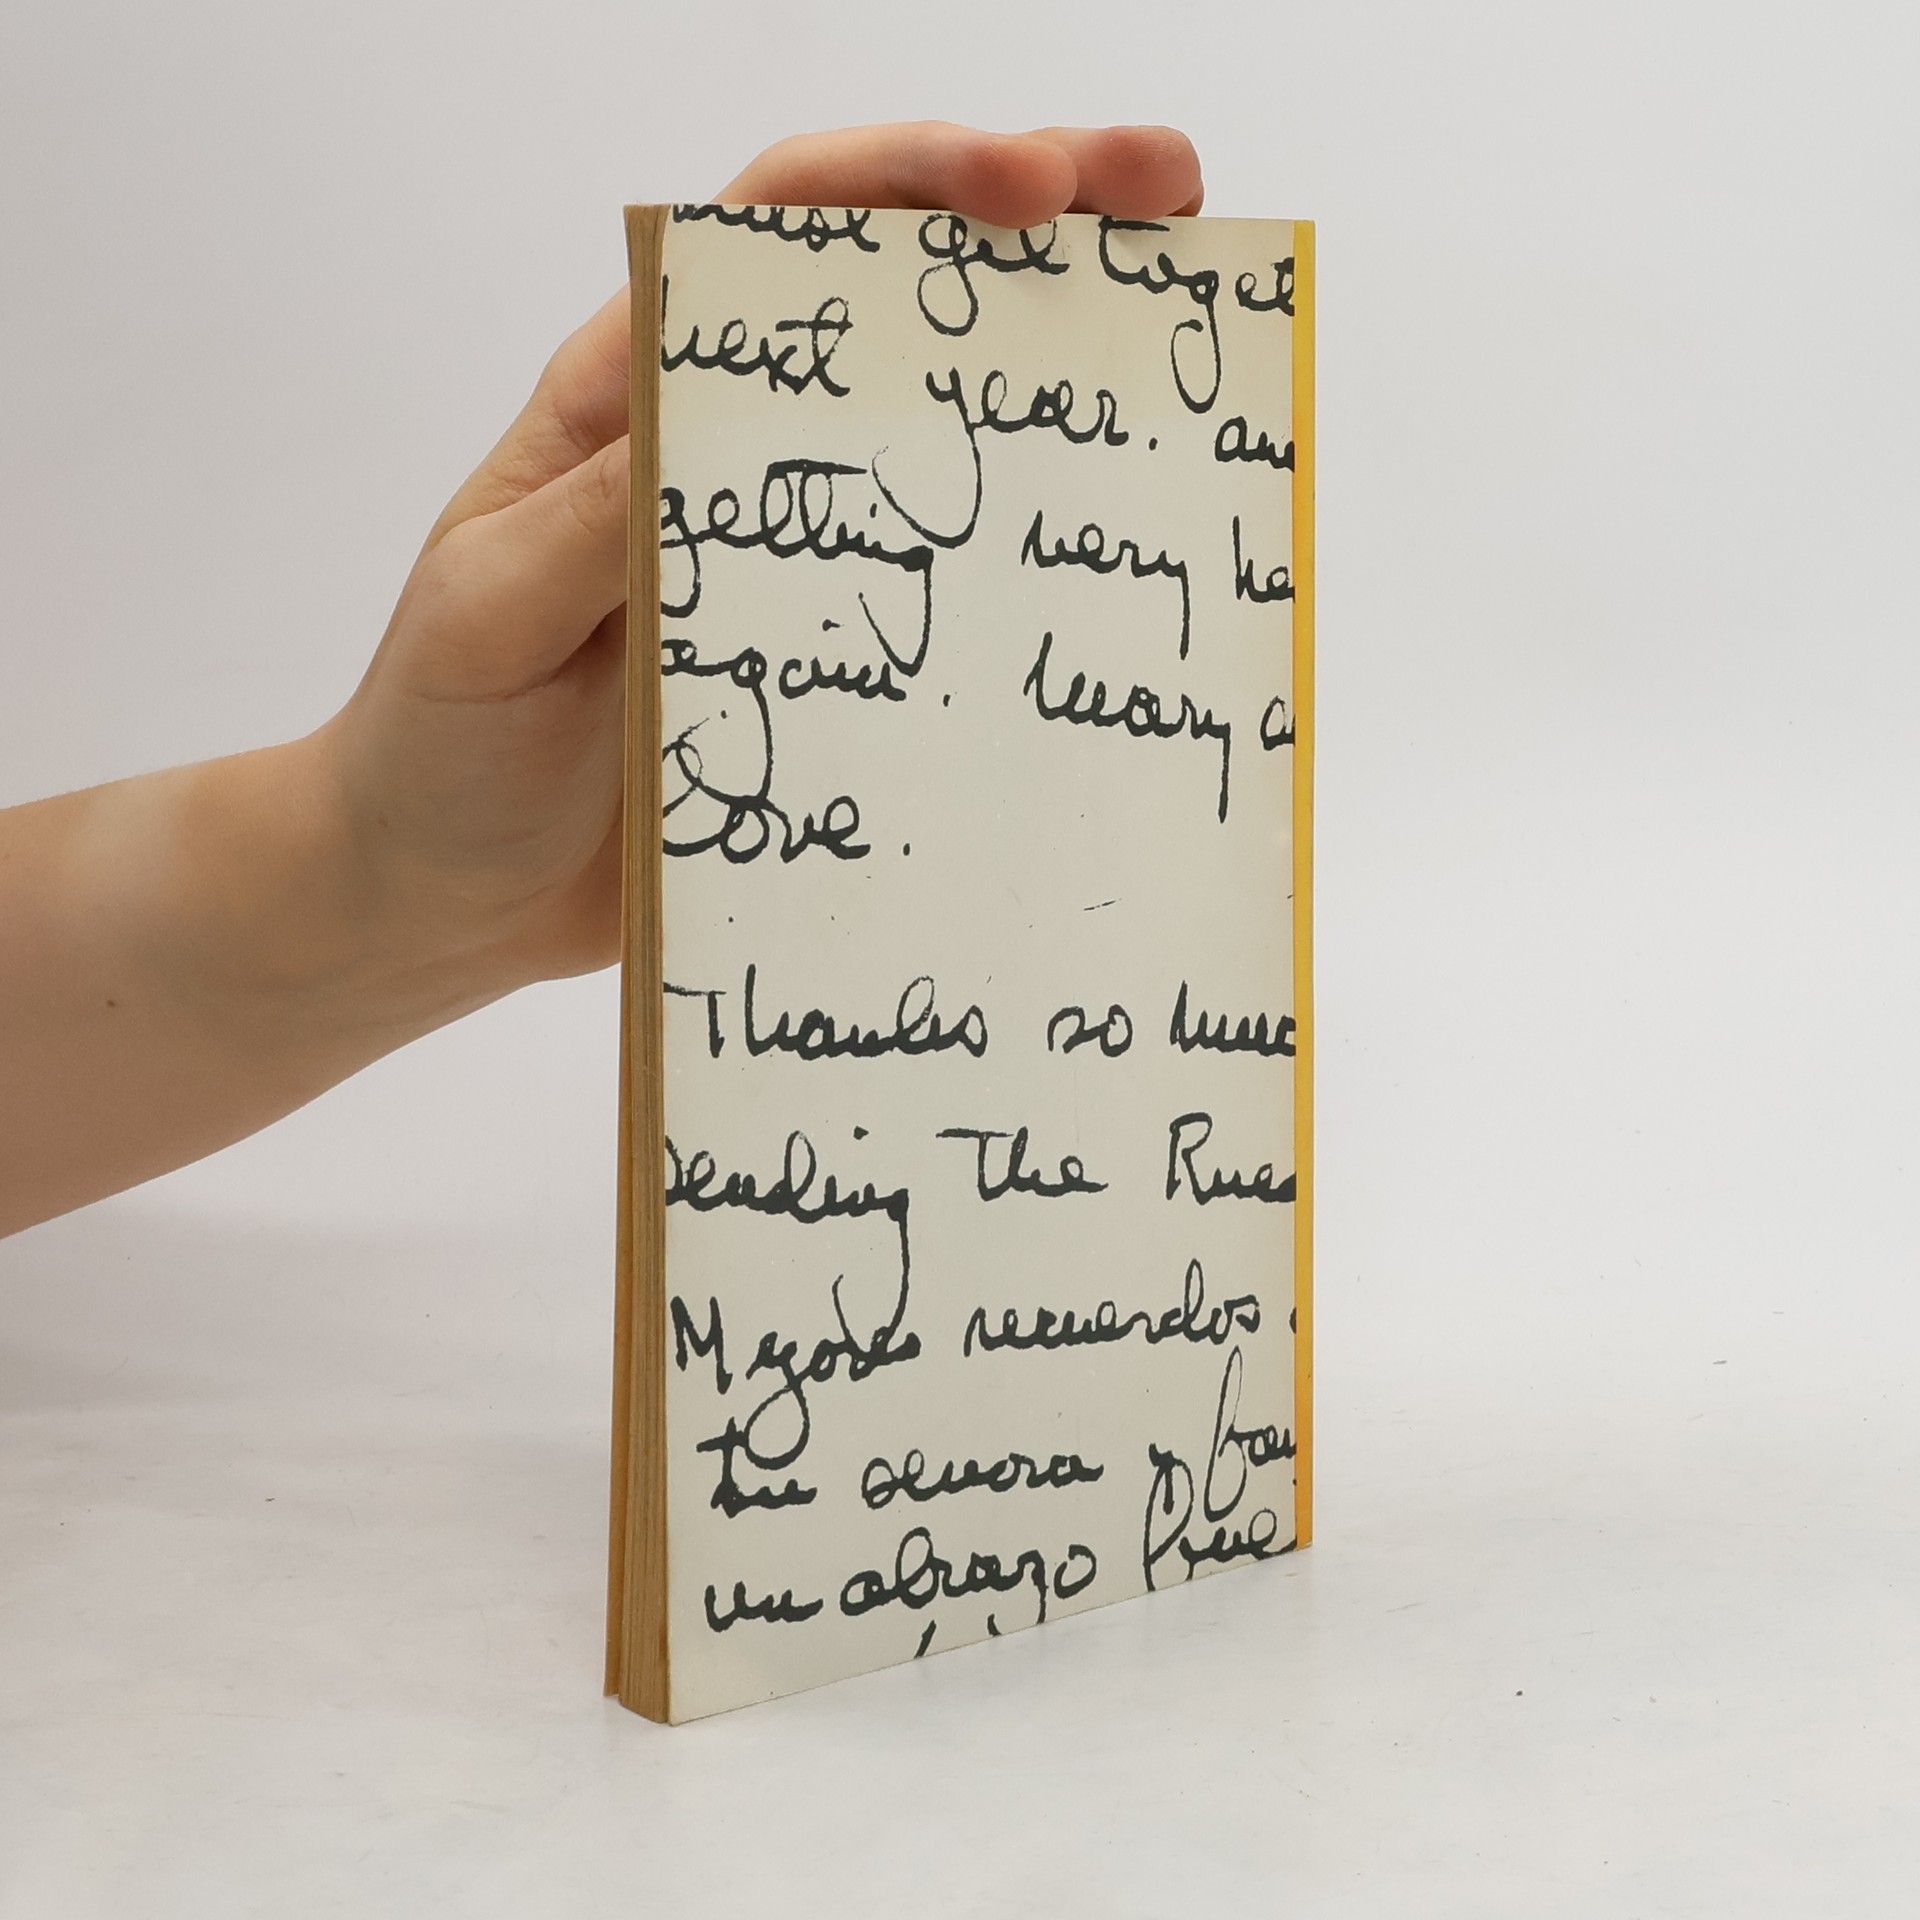 must get toget
next year. and
getting very he
again. Mary a
love.
Thanks so muc
sending the Russ
Mejores recuerdos
tu senora y fam
un abrazo fue